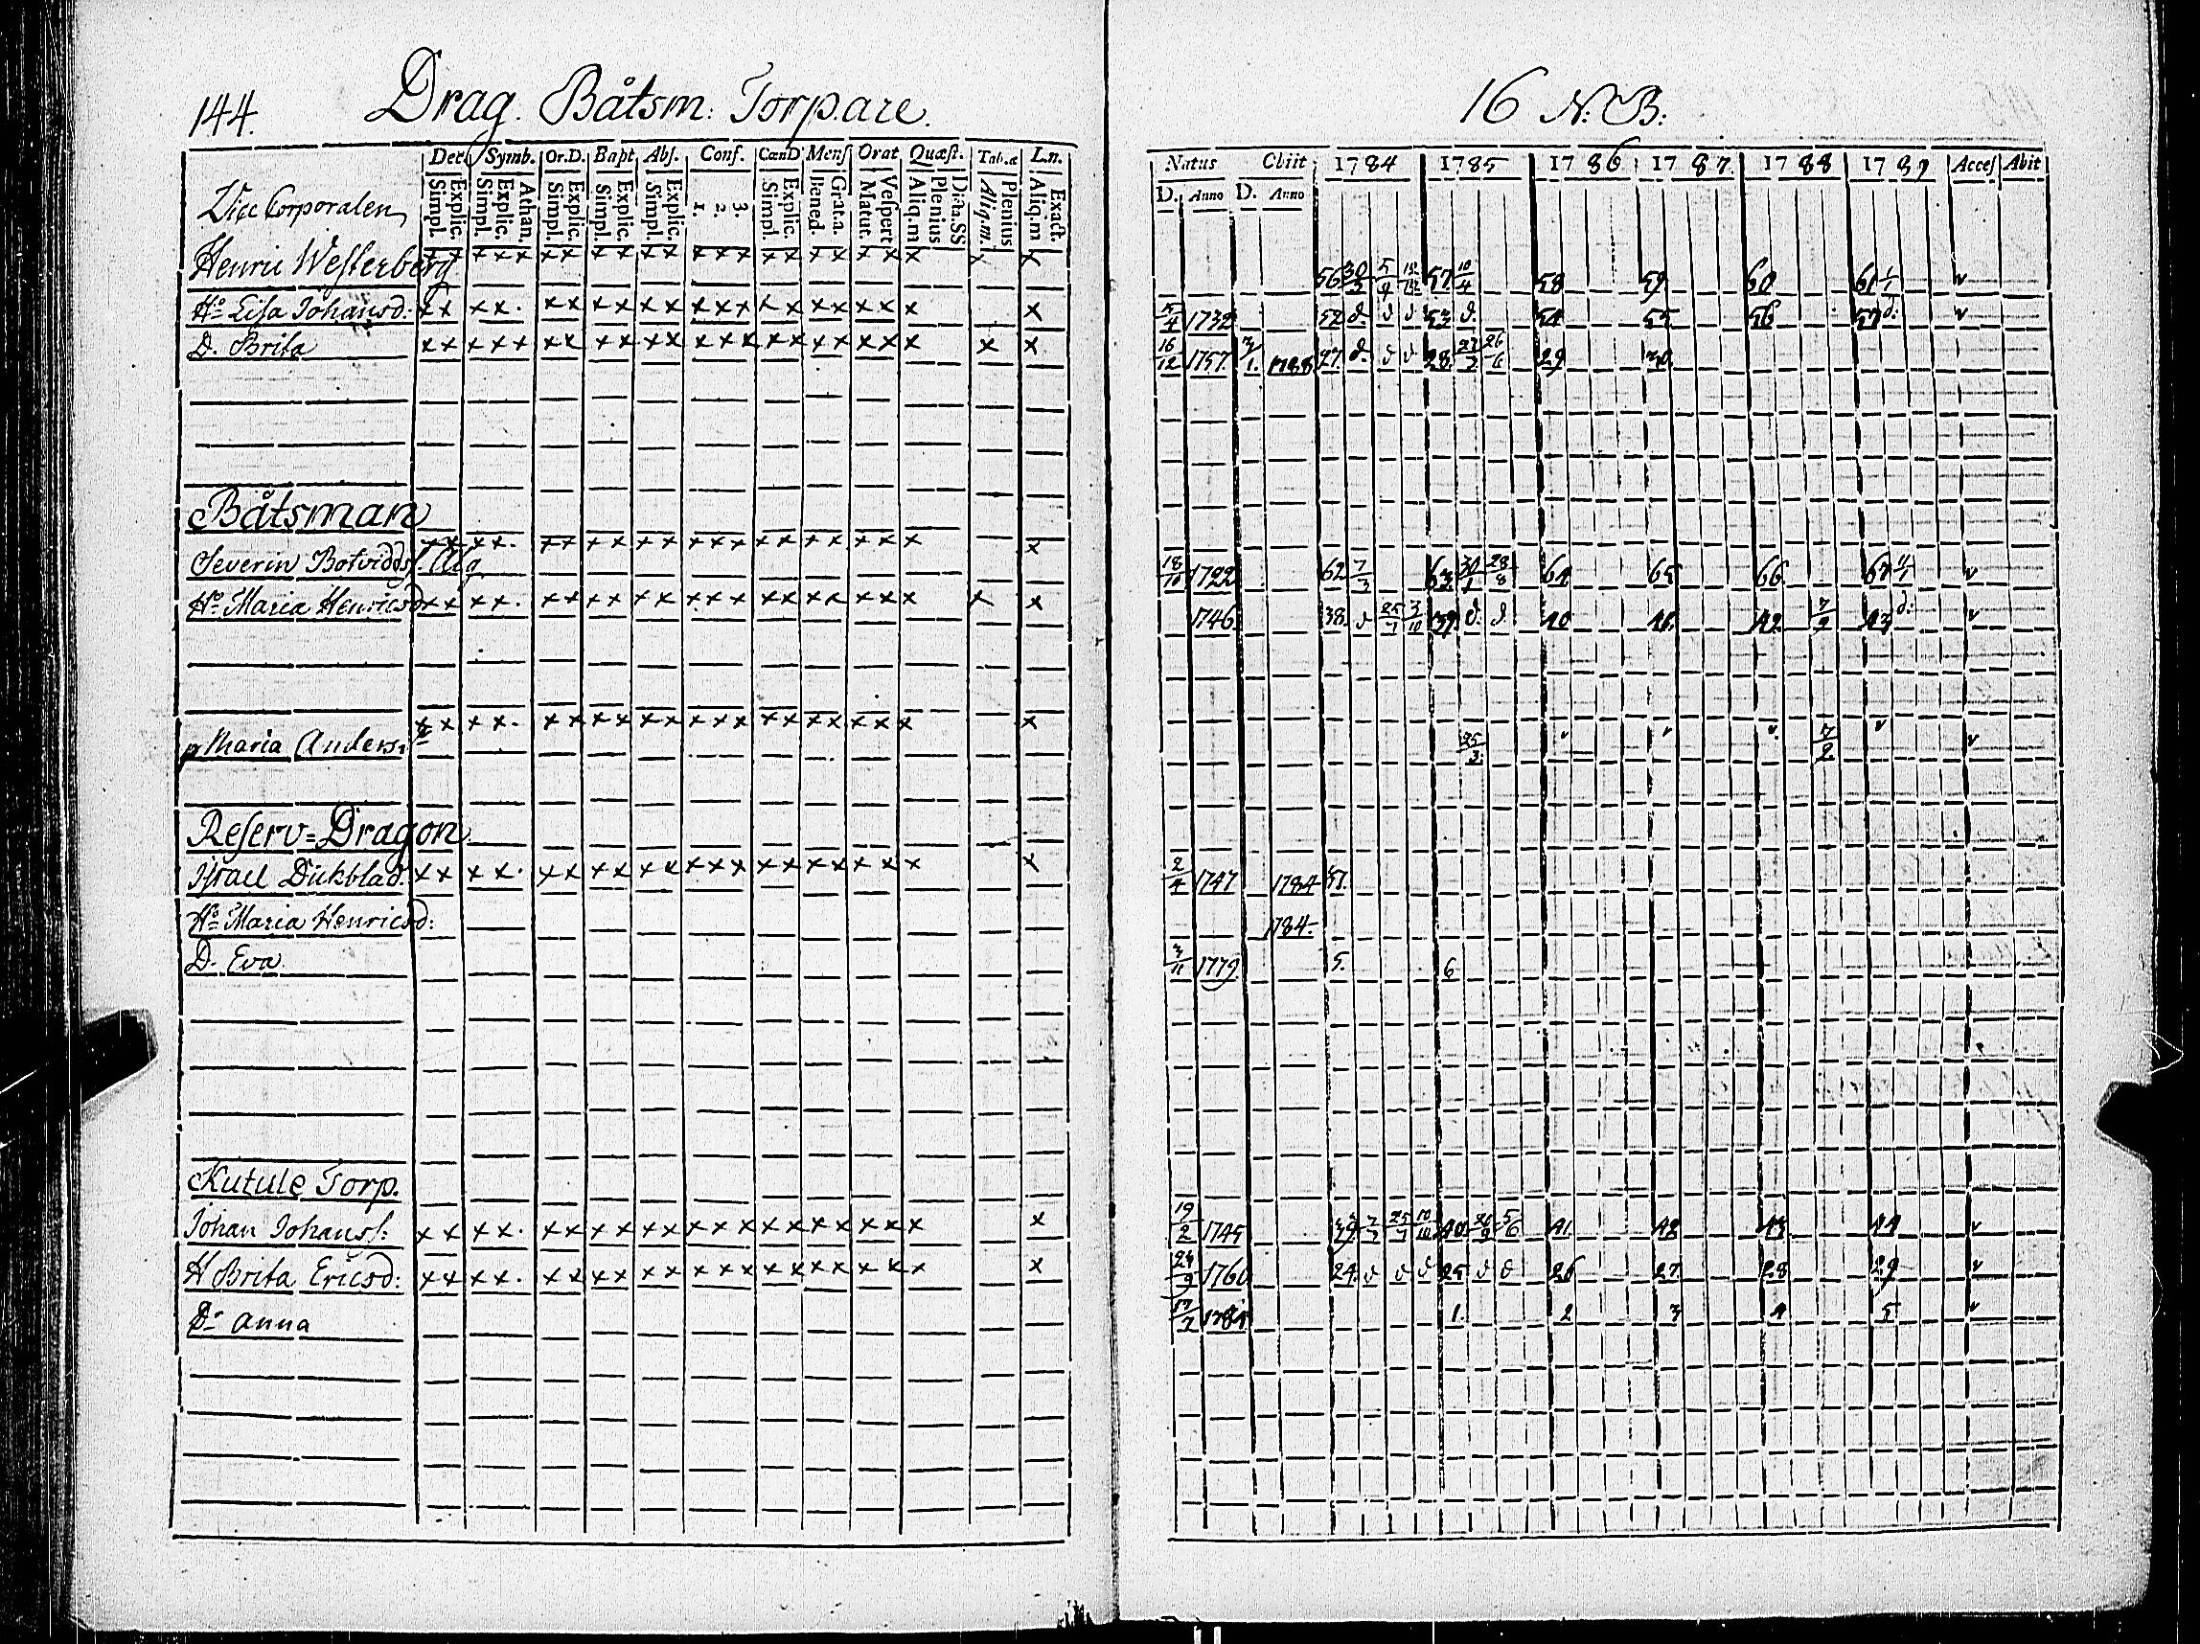 144.
Drag. Båtsm: Torpare.
Dec. Symb. Or.D. Bapt Abs. Conf. CœnD Menſ Orat Quæſt. Tab.æ L.n.
Simpl. Explic. Simpl. Explic. Athan. Simpl. Explic. Simpl. Explic. Simpl. Explic. 1. 2. 3. Simpl. Explic. Bened. Grat.a. Matut. Veſpert Aliq.m Plenius Aliq.m. Plenius Aliq.m Exact.
Vice Corporalen
Henric Weſterberg
H:o Liſa Johansd:
D. Brita
Båtsman
Severin Botvidsſ. Alg
H:o Maria Henricsd
p Maria Anders:
Reſerv=Dragon
Iſrael Dickblad.
H:o Maria Henricsd:
D. Eva
Kutule Torp.
Johan Johansſ:
H Brita Ericsd:
D:r Anna
16 N:B:
Natus Obiit 1784 1785 1786 1787. 1788 1789 Acceſ Abit
D. Anno D. Anno
56 30/3 57 10/4 58 59 60 61 1/1
1732 52 d. d d 53 d. 54 55 56 57 d.
16/12 1757. 3/1. 1788 27. d. d d 28. 26/6 29 30
18/10 1722 62 7/3 63 30/1 28/8 64 65 66 67
1746. 38. d 25/7 3/10 39 d. d 40 41. 42. 43 d.
25/3.
2/4 1747 1784
1784.
3/11 1779. 5. 6
19/2 1745 39. 25/7 10/10 40 5/6 41. 42 43 44
24/9 1760 24. d d d 25. d d 26 27 28 29
1. 2 3 4 5